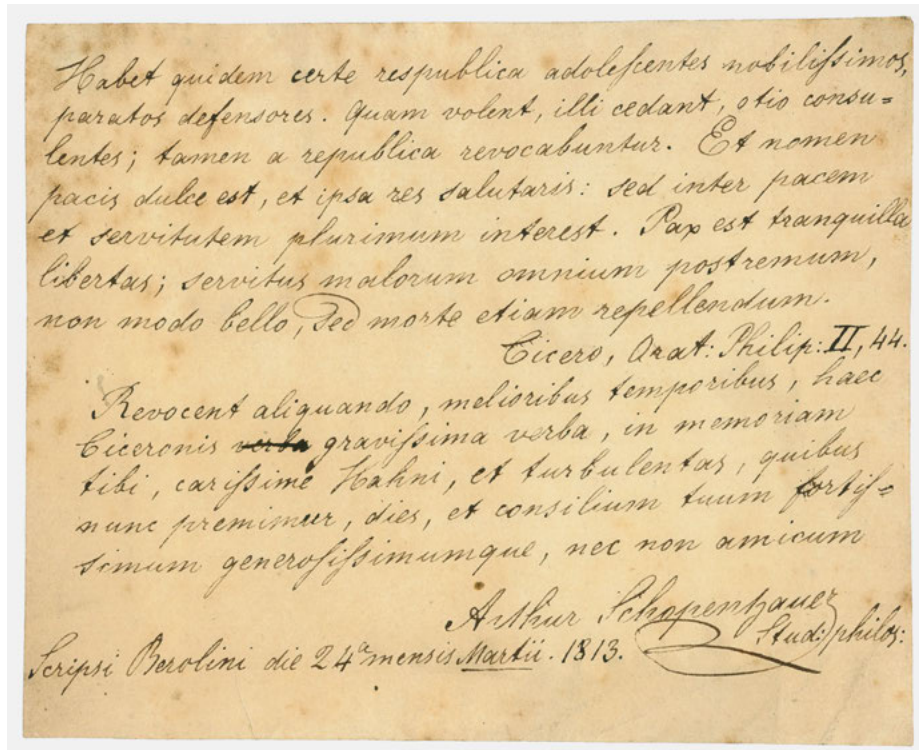 Habet quidem certe respublica adoleſcentes nobiliſsimos,
paratos defensores. Quam volent, illi cedant, otio consu=
lentes; tamen a republica revocabuntur. Et nomen
pacis dulce est, et ipsa res salutaris: sed inter pacem
et servitutem plurimum interest. Pax est tranquilla
libertas; servitus malorum omnium postremum,
non modo bello, sed morte etiam repellendum.
Cicero, Orat: Philip: II, 44.
Revocent aliquando, melioribus temporibus, haec
Ciceronis verba graviſsima verba, in memoriam
tibi, cariſsime Hahni, et turbulentas, quibus
nunc premimur, dies, et consilium tuum fortiſ=
simum generoſiſsimumque, nec non amicum
Arthur Schopenhauer
Stud: philos:
Scripsi Berolini die 24ª mensis Martii. 1813.